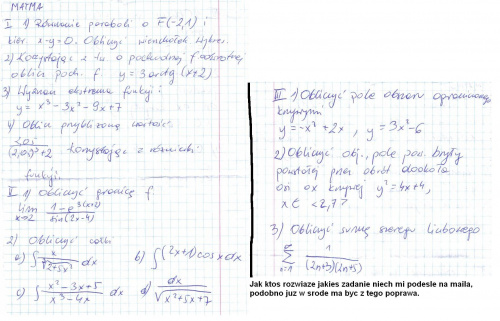 MATMA
I 1) Równanie paraboli o F(-2,1) i
kier. x-y=0. Obliczyć wierzchołek. Wykres.
2) Korzystając z tw. o pochodnej f. odwrotnej
oblicz poch. f. y = 3 arctg (x+2)
3) Wyznacz ekstrema funkcji:
y = x³-3x²-9x+7
4) Oblicz przybliżoną wartość
korzystając z różniczki
funkcji.
II. 1) Obliczyć granicę f.
lim x→2 (1-e^3(x-2))/(sin(2x-4))
2) Obliczyć całki
a) ∫ x/√(2+5x²) dx b) ∫(2x+1)cosxdx
c) ∫ (x²-3x+5)/(x³-4x) dx d) ∫ dx/√(x²+5x+7)
III 1) Obliczyć pole obszaru ograniczonego
krzywymi
y=-x²+2x, y=3x²-6
2) Obliczyć obj., pole pow. bryły
powstałej przez obrót dookoła
osi ox krzywej y²=4x+4,
x∈<2,7>
3) Obliczyć sumę szeregu liczbowego
∑ n=1 ∞ 1/((2n+3)(2n+5))
Jak ktos rozwiaze jakies zadanie niech mi podesle na maila,
podobno juz w srode ma byc z tego poprawa.